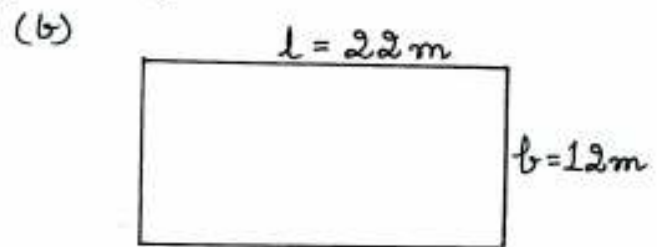 (b)
l = 22m
b=12m